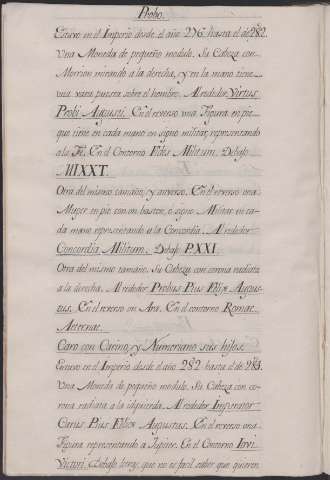 Probo.
Estuvo en el Imperio desde el año 276. hasta el de 282.
Una Moneda de pequeño modulo. Su Cabeza con
Morrion mirando a la derecha, y en la mano tiene
una vara puesta sobre el hombro. Al rededor Virtus
Probi Augusti. En el reverso una Figura en pie
que tiene en cada mano un signo militar, representando
a la Fe. En el Contorno Fides Militum. Debajo
MIXXT.
Otra del mismo tamaño, y anverso. En el reverso una
Muger en pie con un baston, o signo Militar en ca-
da mano representando a la Concordia. Al rededor
Concordia Militum. Debajo P.XXI.
Otra del mismo tamaño. Su Cabeza con corona radiata
a la derecha. Al rededor Probus Pius Felix Augus-
tus. En el reverso un Ara. En el contorno Romae
Aeternae.
Caro con Carino, y Numeriano sus hijos.
Estuvo en el Imperio desde el año 282 hasta el de 283.
Una Moneda de pequeño modulo. Su Cabeza con co-
rona radiata a la izquierda. Al rededor Imperator
Carus Pius Felix Augustus. En el reverso una
Figura representando a Jupiter. En el Contorno Iovi
Victori. Debajo letras, que no es facil saber que quieren